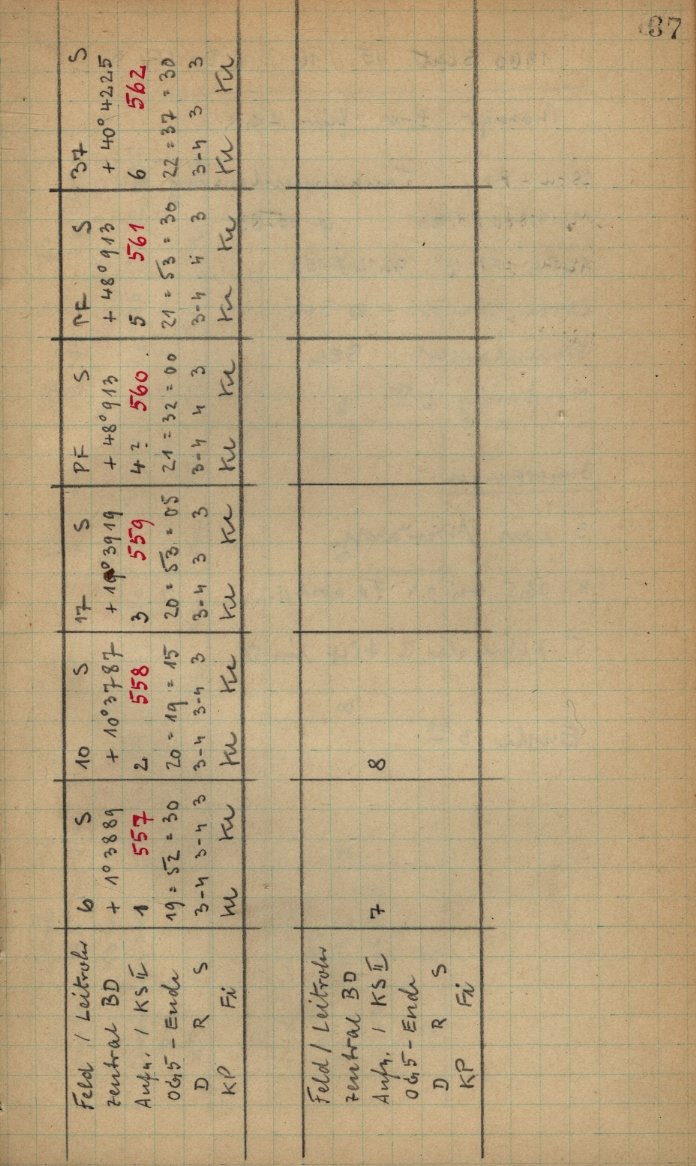 37
Feld / Leitrohr 6 S 10 S 17 S PF S PF S 37 S
zentral BD + 1°3889 + 10°3787 + 19°3919 + 48°913 + 48°913 + 40°4225
Aufn. / KS II 1 557 2 558 3 559 4? 560 5 561 6 562
OG5 - Ende 19=52=30 20=19=15 20=53=05 21=32=00 21=53=30 22=37=30
D R S 3-4 3-4 3 3-4 3-4 3 3-4 3 3 3-4 4 3 3-4 4 3 3-4 3 3
KP Fi Ku Ku Ku Ku Ku Ku Ku Ku Ku Ku Ku Ku
Feld / Leitrohr
zentral BD
Aufn. / KS II 7 8
OG5 - Ende
D R S
KP Fi